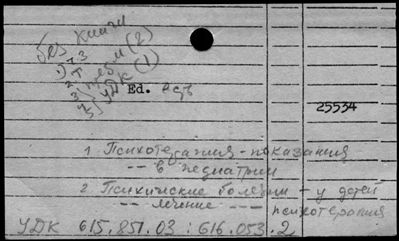 без книги
1) ТЗ
2) предм (2)
3) УДК (1)
Ed.
25534
1. Психотерапия - показания
-- в педиатрии
2 Психические болезни - у детей
-- лечение --- психотерапия
УДК 615.851.03 : 616.053.2